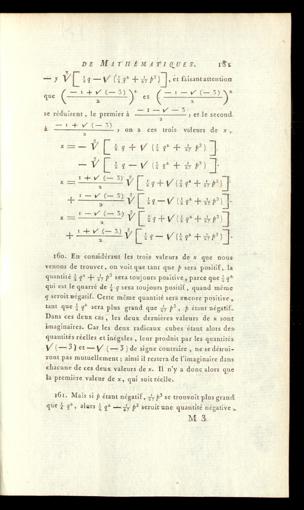 DE MATHÉMATIQUES. 181
— y ∛[ ½ q — √ (¼ q² + 1/27 p³) ], et faisant attention
que ((— 1 + √ (— 3))/2)² et ((— 1 — √ (— 3))/2)²
se réduisent, le premier à (— 1 — √ — 3)/2, et le second
à (— 1 + √ (— 3))/2, on a ces trois valeurs de x,
x = — ∛[ ½ q + √ (¼ q² + 1/27 p³) ]
— ∛[ ½ q — √ (¼ q² + 1/27 p³) ].
x = (1 + √ (— 3))/2 ∛[ ½ q + √ (¼ q² + 1/27 p³) ]
+ (1 — √ (— 3))/2 ∛[ ½ q — √ (¼ q² + 1/27 p³) ].
x = (1 — √ (— 3))/2 ∛[ ½ q + √ (¼ q² + 1/27 p³) ]
+ (1 + √ (— 3))/2 ∛[ ½ q — √ (¼ q² + 1/27 p³) ].
160. En considérant les trois valeurs de x que nous
venons de trouver, on voit que tant que p sera positif, la
quantité ¼ q² + 1/27 p³ sera toujours positive, parce que ¼ q²
qui est le quarré de ½ q sera toujours positif, quand même
q seroit négatif. Cette même quantité sera encore positive,
tant que ¼ q² sera plus grand que 1/27 p³, p étant négatif.
Dans ces deux cas, les deux dernières valeurs de x sont
imaginaires. Car les deux radicaux cubes étant alors des
quantités réelles et inégales, leur produit par les quantités
√ (— 3) et — √ (— 3) de signe contraire, ne se détrui-
ront pas mutuellement; ainsi il restera de l'imaginaire dans
chacune de ces deux valeurs de x. Il n'y a donc alors que
la première valeur de x, qui soit réelle.
161. Mais si p étant négatif, 1/27 p³ se trouvoit plus grand
que ¼ q², alors ¼ q² — 1/27 p³ seroit une quantité négative,
M 3